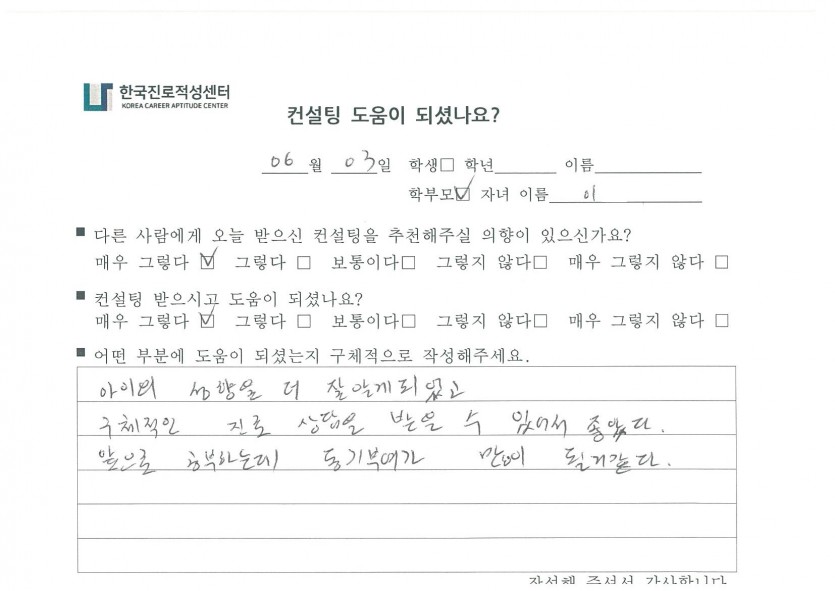 한국진로적성센터
KOREA CAREER APTITUDE CENTER
컨설팅 도움이 되셨나요?
06월 03일 학생□ 학년 이름
학부모☑ 자녀 이름 이
■ 다른 사람에게 오늘 받으신 컨설팅을 추천해주실 의향이 있으신가요?
매우 그렇다 ☑ 그렇다 □ 보통이다□ 그렇지 않다□ 매우 그렇지 않다 □
■ 컨설팅 받으시고 도움이 되셨나요?
매우 그렇다 ☑ 그렇다 □ 보통이다□ 그렇지 않다□ 매우 그렇지 않다 □
■ 어떤 부분에 도움이 되셨는지 구체적으로 작성해주세요.
아이의 성향을 더 잘알게되었고
구체적인 진로 상담을 받을 수 있어서 좋았다.
앞으로 공부하는데 동기부여가 많이 될거같다.
작성해 주셔서 감사합니다